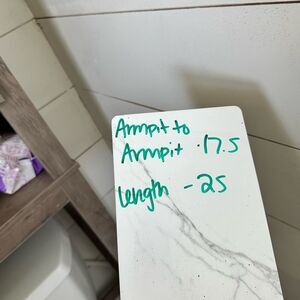 Armpit to
Armpit · 17.5
length - 25